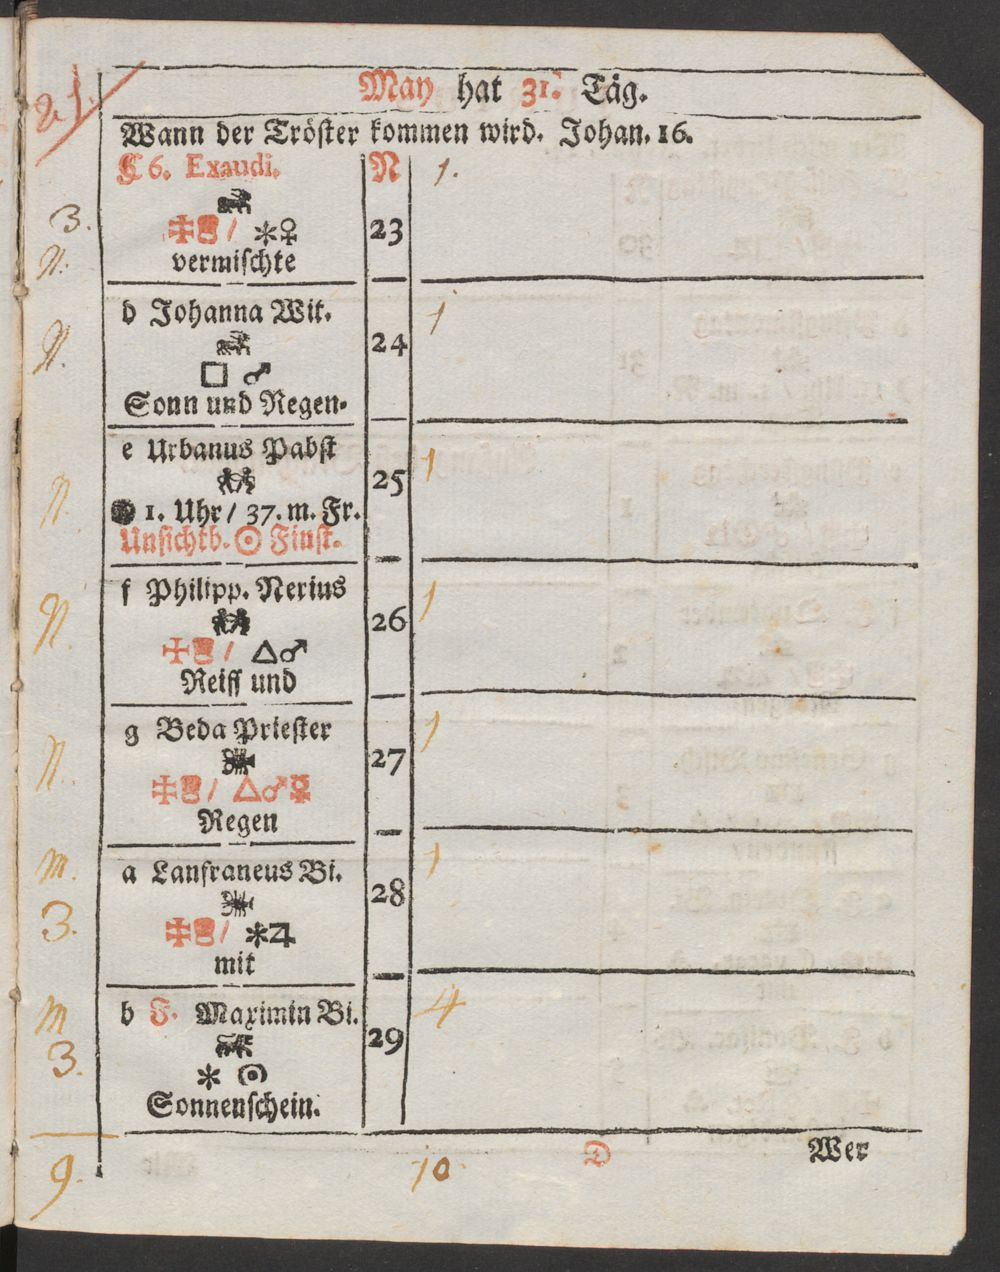 21.
May hat 31. Täg.
Wann der Tröster kommen wird. Johan. 16.
C 6. Exaudi. N 1.
3. 23
N. vermischte
d Johanna Wit.
N. 24 1
□ ♂
Sonn und Regen-
e Urbanus Pabst
N. 25 1
1. Uhr / 37. m. Fr.
Unsichtb. ☉ Finst.
f Philipp. Nerius
N. 26 1
/ △♂
Reiff und
g Beda Priester
N. 27 1
/ △♂☿
Regen
m. a Lanfraneus Bi. 1
3. 28
/ ✱♃
mit
m b F. Maximin Bi. 4
3. 29
✱ ☉
Sonnenschein.
D Wer
9. 10.